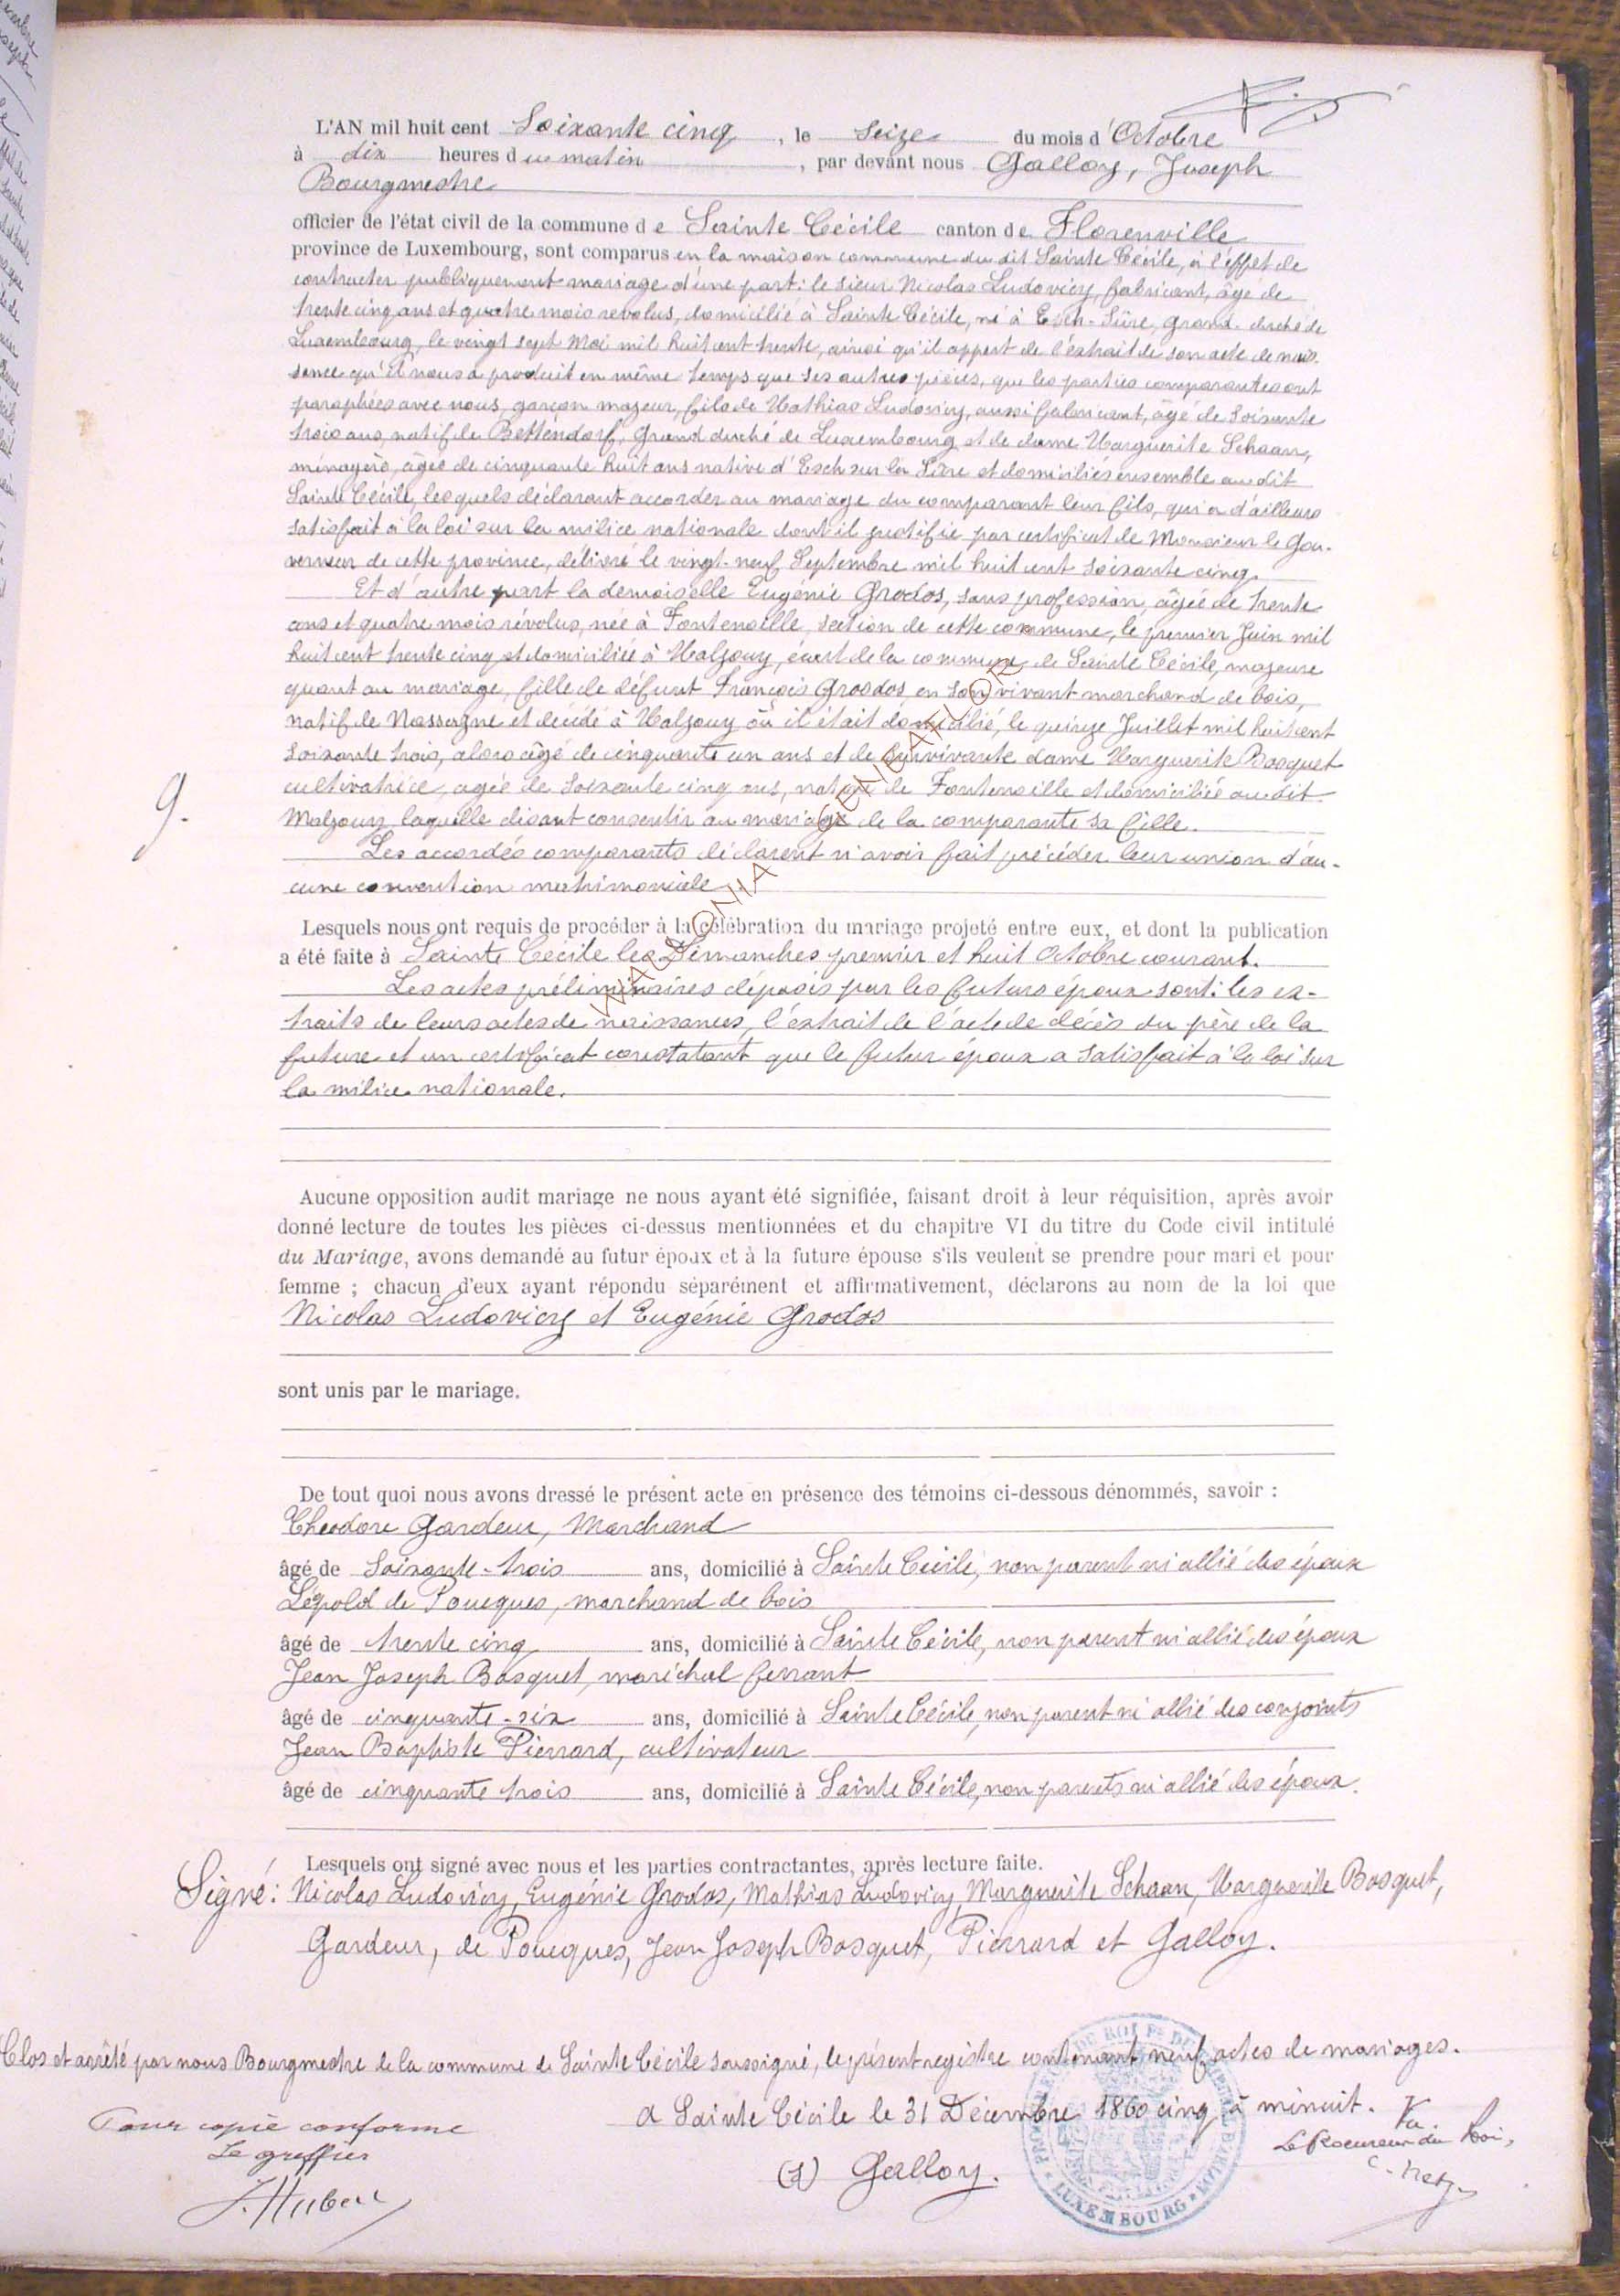 L'AN mil huit cent Soixante cinq, le Seize du mois d'Octobre
à dix heures du matin, par devant nous Galloy, Joseph
Bourgmestre
officier de l'état civil de la commune de Sainte Cécile canton de Florenville
province de Luxembourg, sont comparus en la maison commune du dit Sainte Cécile, à l'effet de
contracter publiquement mariage d'une part: le sieur Nicolas Ludovicy, fabricant, âgé de
trente cinq ans et quatre mois révolus, domicilié à Sainte Cécile, né à Esch-Sûre, grand-duché de
Luxembourg, le vingt sept Mai mil huit cent trente, ainsi qu'il appert de l'extrait de son acte de nais-
sance qu'il nous a produit en même temps que ses autres pièces, que les parties comparantes ont
paraphées avec nous, garçon majeur, fils de Mathias Ludovicy, aussi fabricant, âgé de soixante
trois ans, natif de Bettendorf, Grand duché de Luxembourg et de dame Marguerite Schaan,
ménagère, âgée de cinquante huit ans native d'Esch sur la Sûre et domiciliés ensemble au dit
Sainte Cécile, lesquels déclarant accorder au mariage du comparant leur fils, qui a d'ailleurs
satisfait à la loi sur la milice nationale dont il justifie par certificat de Monsieur le Gou-
verneur de cette province, délivré le vingt-neuf Septembre mil huit cent soixante cinq.
Et d'autre part la demoiselle Eugénie Grodos, sans profession, âgée de trente
ans et quatre mois révolus, née à Fontenoille, section de cette commune, le premier Juin mil
huit cent trente cinq et domiciliée à Maljouy, écart de la commune de Sainte Cécile, majeure
quant au mariage, fille de défunt François Grosdos, en son vivant marchand de bois,
natif de Nassogne et décédé à Maljouy où il était domicilié, le quinze Juillet mil huit cent
soixante trois, alors âgé de cinquante un ans et de survivante dame Marguerite Bosquet
cultivatrice, agée de soixante cinq ans, native de Fontenoille et domiciliée au dit
Maljouy laquelle disant consentir au mariage de la comparante sa fille.
9.
Les accordés comparants déclarent n'avoir fait précéder leur union d'au-
cune convention matrimoniale
Lesquels nous ont requis de procéder à la célébration du mariage projeté entre eux, et dont la publication
a été faite à Sainte Cécile les Dimanches premier et huit Octobre courant.
Les actes préliminaires déposés par les futurs époux sont: les ex-
traits de leurs actes de naissances, l'extrait de l'acte de décès du père de la
future et un certificat constatant que le futur époux a satisfait à la loi sur
la milice nationale.
WALLONIA GENEAFLOR
Aucune opposition audit mariage ne nous ayant été signifiée, faisant droit à leur réquisition, après avoir
donné lecture de toutes les pièces ci-dessus mentionnées et du chapitre VI du titre du Code civil intitulé
du Mariage, avons demandé au futur époux et à la future épouse s'ils veulent se prendre pour mari et pour
femme ; chacun d'eux ayant répondu séparément et affirmativement, déclarons au nom de la loi que
Nicolas Ludovicy et Eugénie Grodos
sont unis par le mariage.
De tout quoi nous avons dressé le présent acte en présence des témoins ci-dessous dénommés, savoir :
Théodore Gardeur, Marchand
âgé de soixante-trois ans, domicilié à Sainte Cécile, non parent ni allié des époux
Léopold de Pouques, marchand de bois
âgé de trente cinq ans, domicilié à Sainte Cécile, non parent ni allié des époux
Jean Joseph Bosquet, maréchal ferrant
âgé de cinquante-six ans, domicilié à Sainte Cécile, non parent ni allié des conjoints
Jean Baptiste Pierrard, cultivateur
âgé de cinquante trois ans, domicilié à Sainte Cécile, non parents ni allié des époux.
Lesquels ont signé avec nous et les parties contractantes, après lecture faite.
Signé: Nicolas Ludovicy, Eugénie Grodos, Mathias Ludovicy, Marguerite Schaan, Marguerite Bosquet,
Gardeur, de Pouques, Jean Joseph Bosquet, Pierrard et Galloy.
Clos et arrêté par nous Bourgmestre de la commune de Sainte Cécile soussigné, le présent registre contenant neuf actes de mariages.
A Sainte Cécile le 31 Décembre 1860 cinq à minuit.
Pour copie conforme
Le greffier
J. Hubert
(s) Galloy.
Vu.
Le Procureur du Roi,
LUXEMBOURG